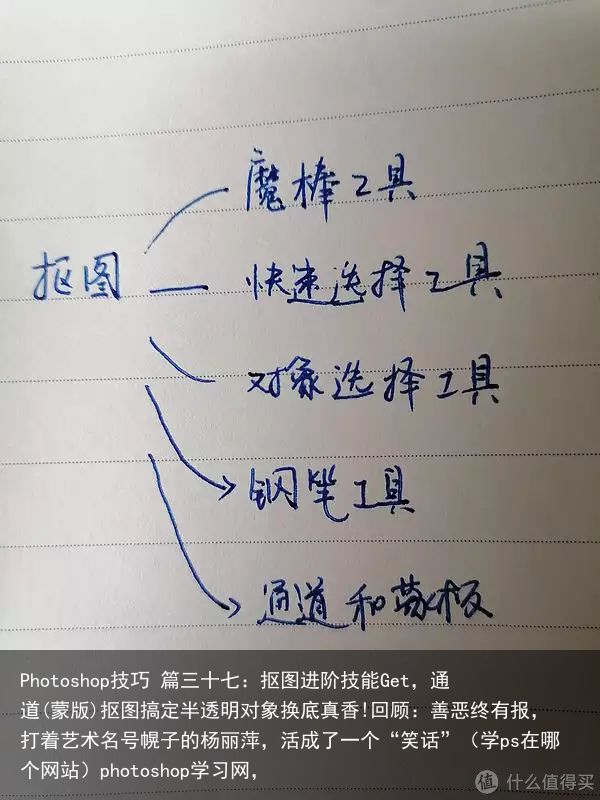 魔棒工具
抠图
快速选择工具
对象选择工具
钢笔工具
通道和蒙板
Photoshop技巧 篇三十七：抠图进阶技能Get，通
道(蒙版)抠图搞定半透明对象换底真香!回顾：善恶终有报，
打着艺术名号幌子的杨丽萍，活成了一个“笑话”（学ps在哪
个网站）photoshop学习网，
值 什么值得买